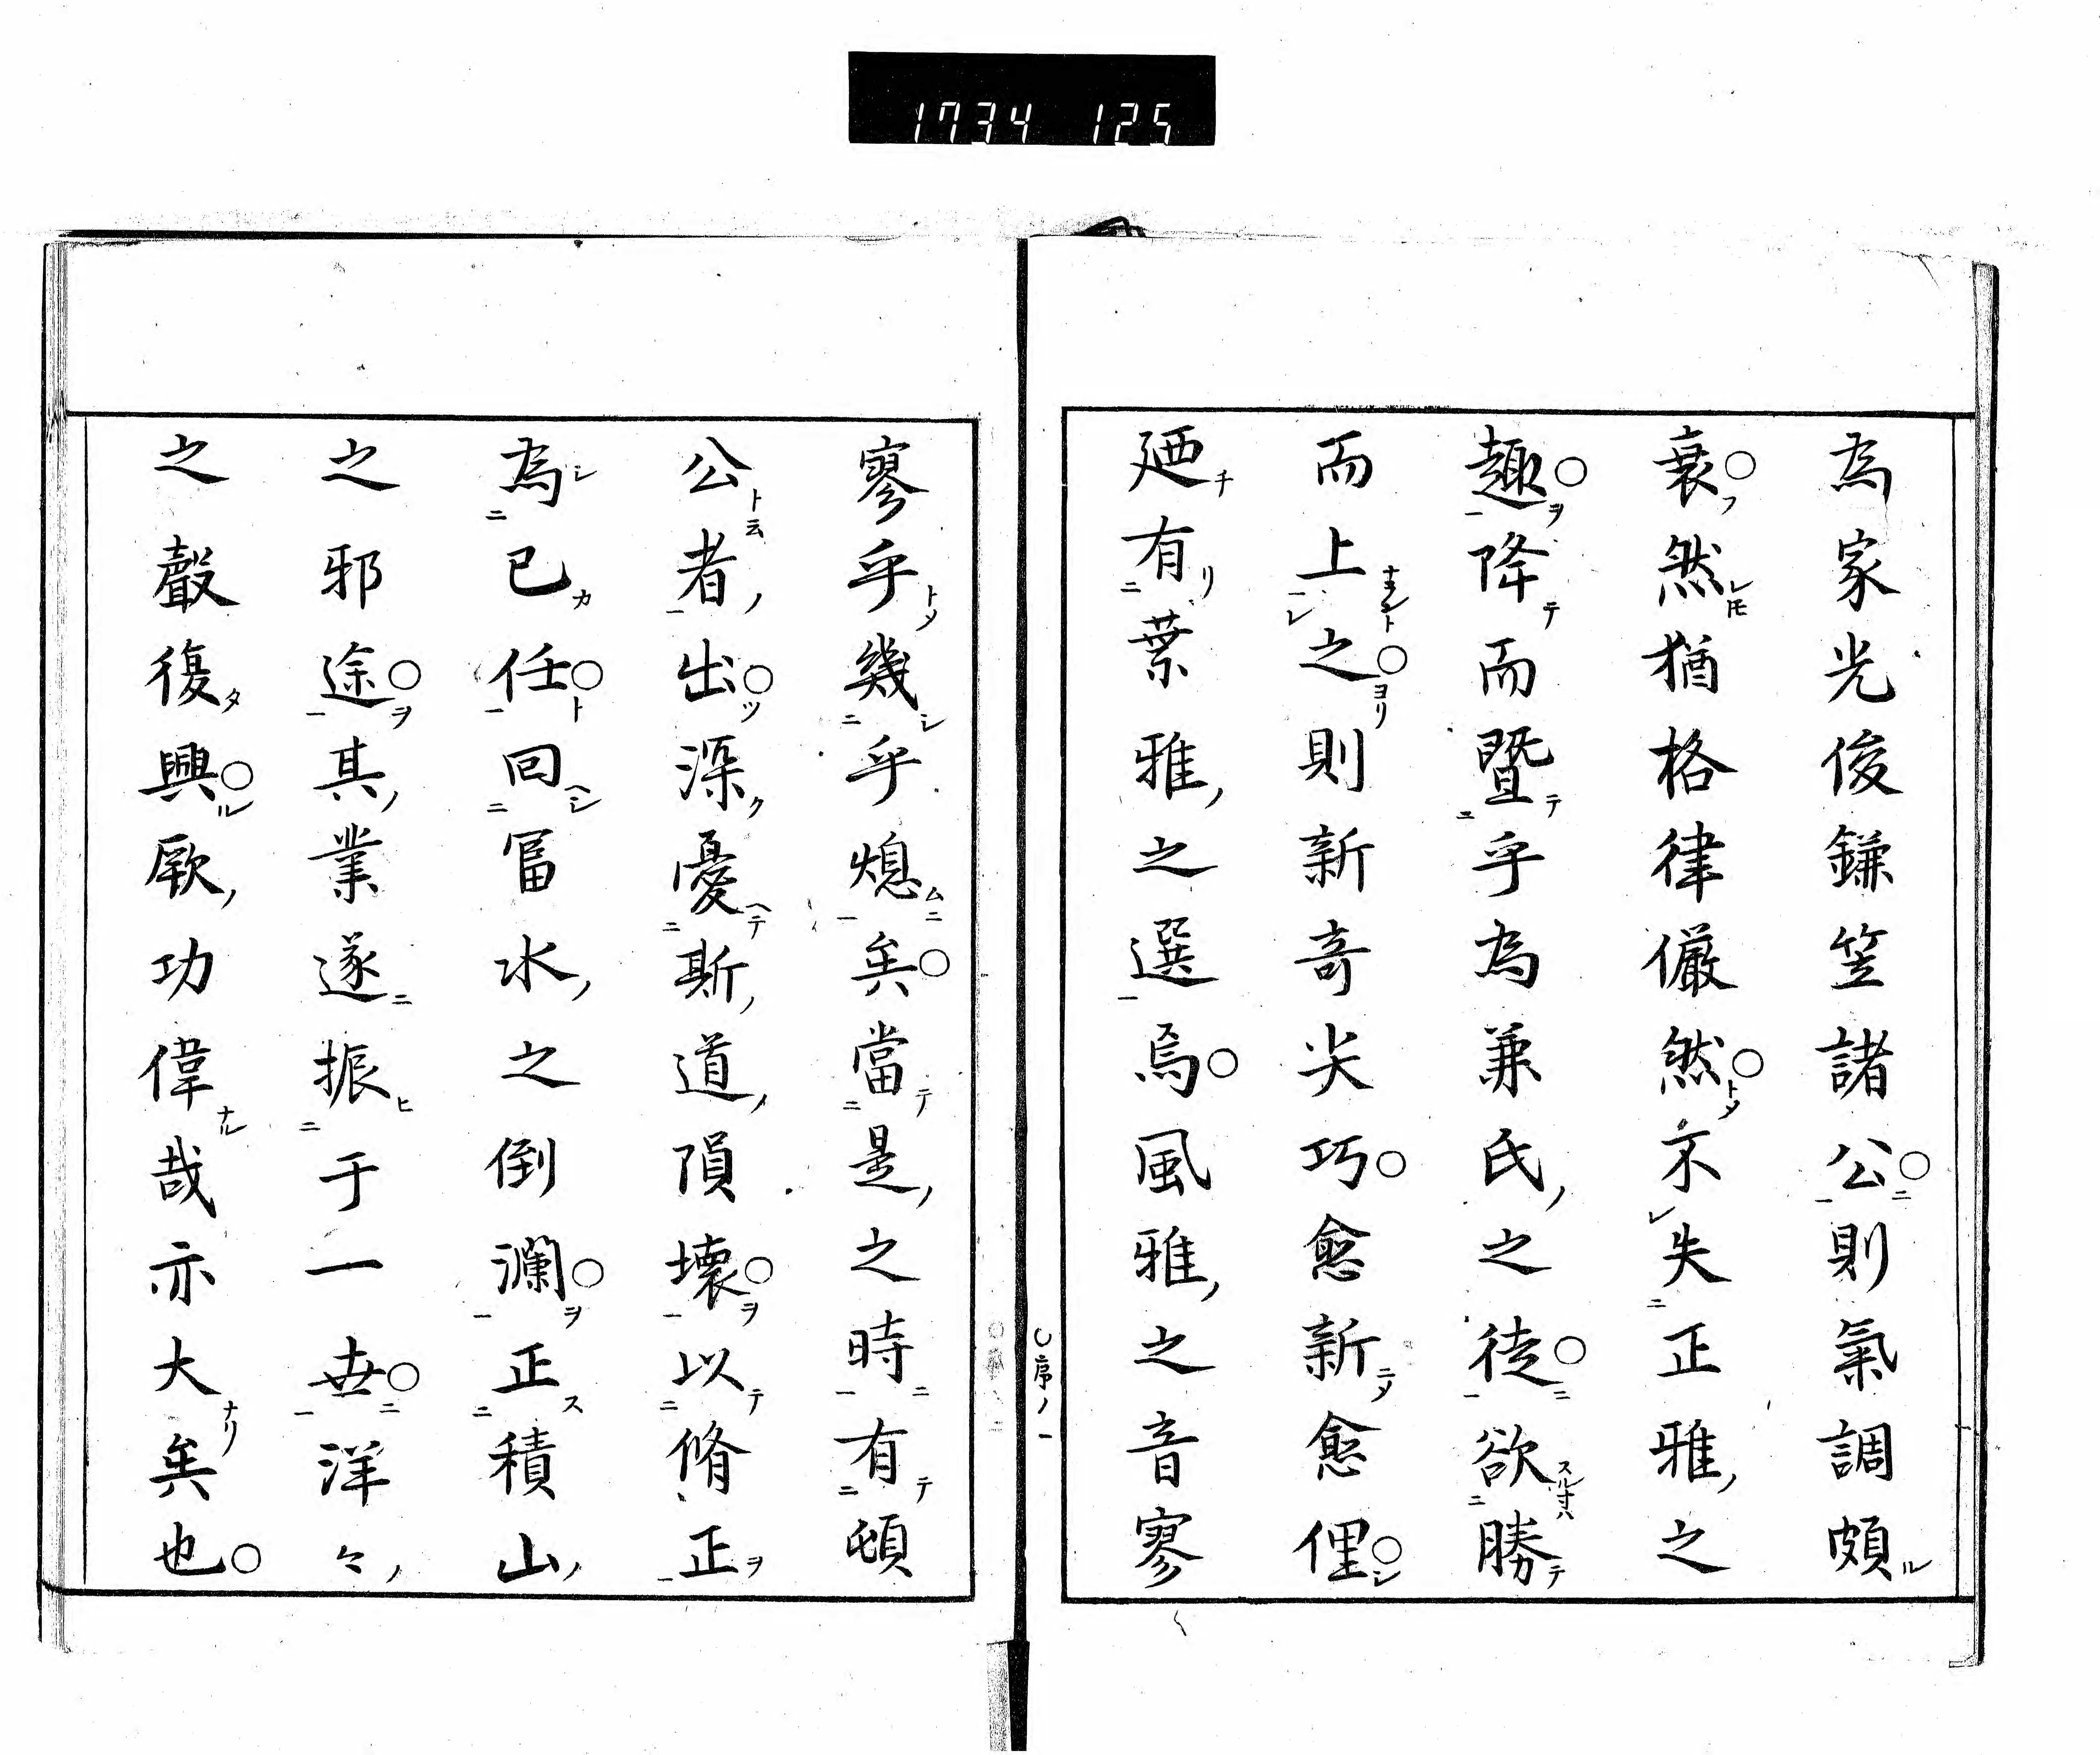 1734 125
為家光俊鎌笠諸公則氣調頗
衰然猶格律儼然不失正雅之
趣降而曁乎為兼氏之徒欲勝
而上之則新奇尖巧愈新愈俚
廼有葉雅之選焉風雅之音寥
○序ノ一
寥乎幾乎熄矣當是之時有頓
公者出深憂斯道隕壞以脩正
為已任回冨水之倒瀾正積山
之邪途其業遂振于一丗洋々
之聲復興厥功偉哉亦大矣也